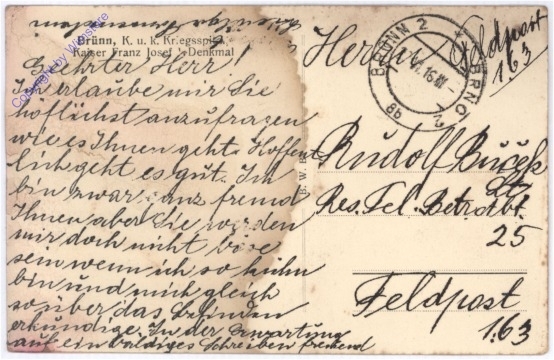 Brünn, K. u. k. Kriegsspital
Kaiser Franz Josef -Denkmal
Geehrter Herr!
Ich erlaube mir Sie
höflichst anzufragen
wie es Ihnen geht. Hoffent
lich geht es gut. Ich
bin zwar ganz fremd
Ihnen aber Sie werden
mir doch nicht böse
sein wenn ich so kühn
bin und mich gleich
so über das
erkundige. In der Erwartung
auf ein baldiges Schreiben
Herrn
Feldpost
163
BRÜNN 2
BRNO 2
8b
Rudolf
Res. Tel. Betr. Abt.
25
Feldpost
163
B. W. B.
Copyright by Winshire